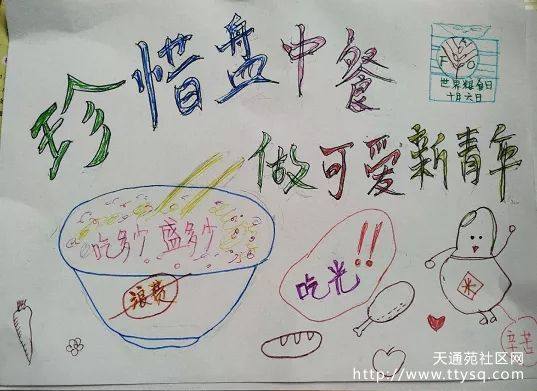 珍惜盘中餐
FAO
世界粮食日
十月六日
做可爱新青年
吃多少 盛多少
浪费
吃光!!
米
辛苦
天通苑社区网
http://www.ttysq.com